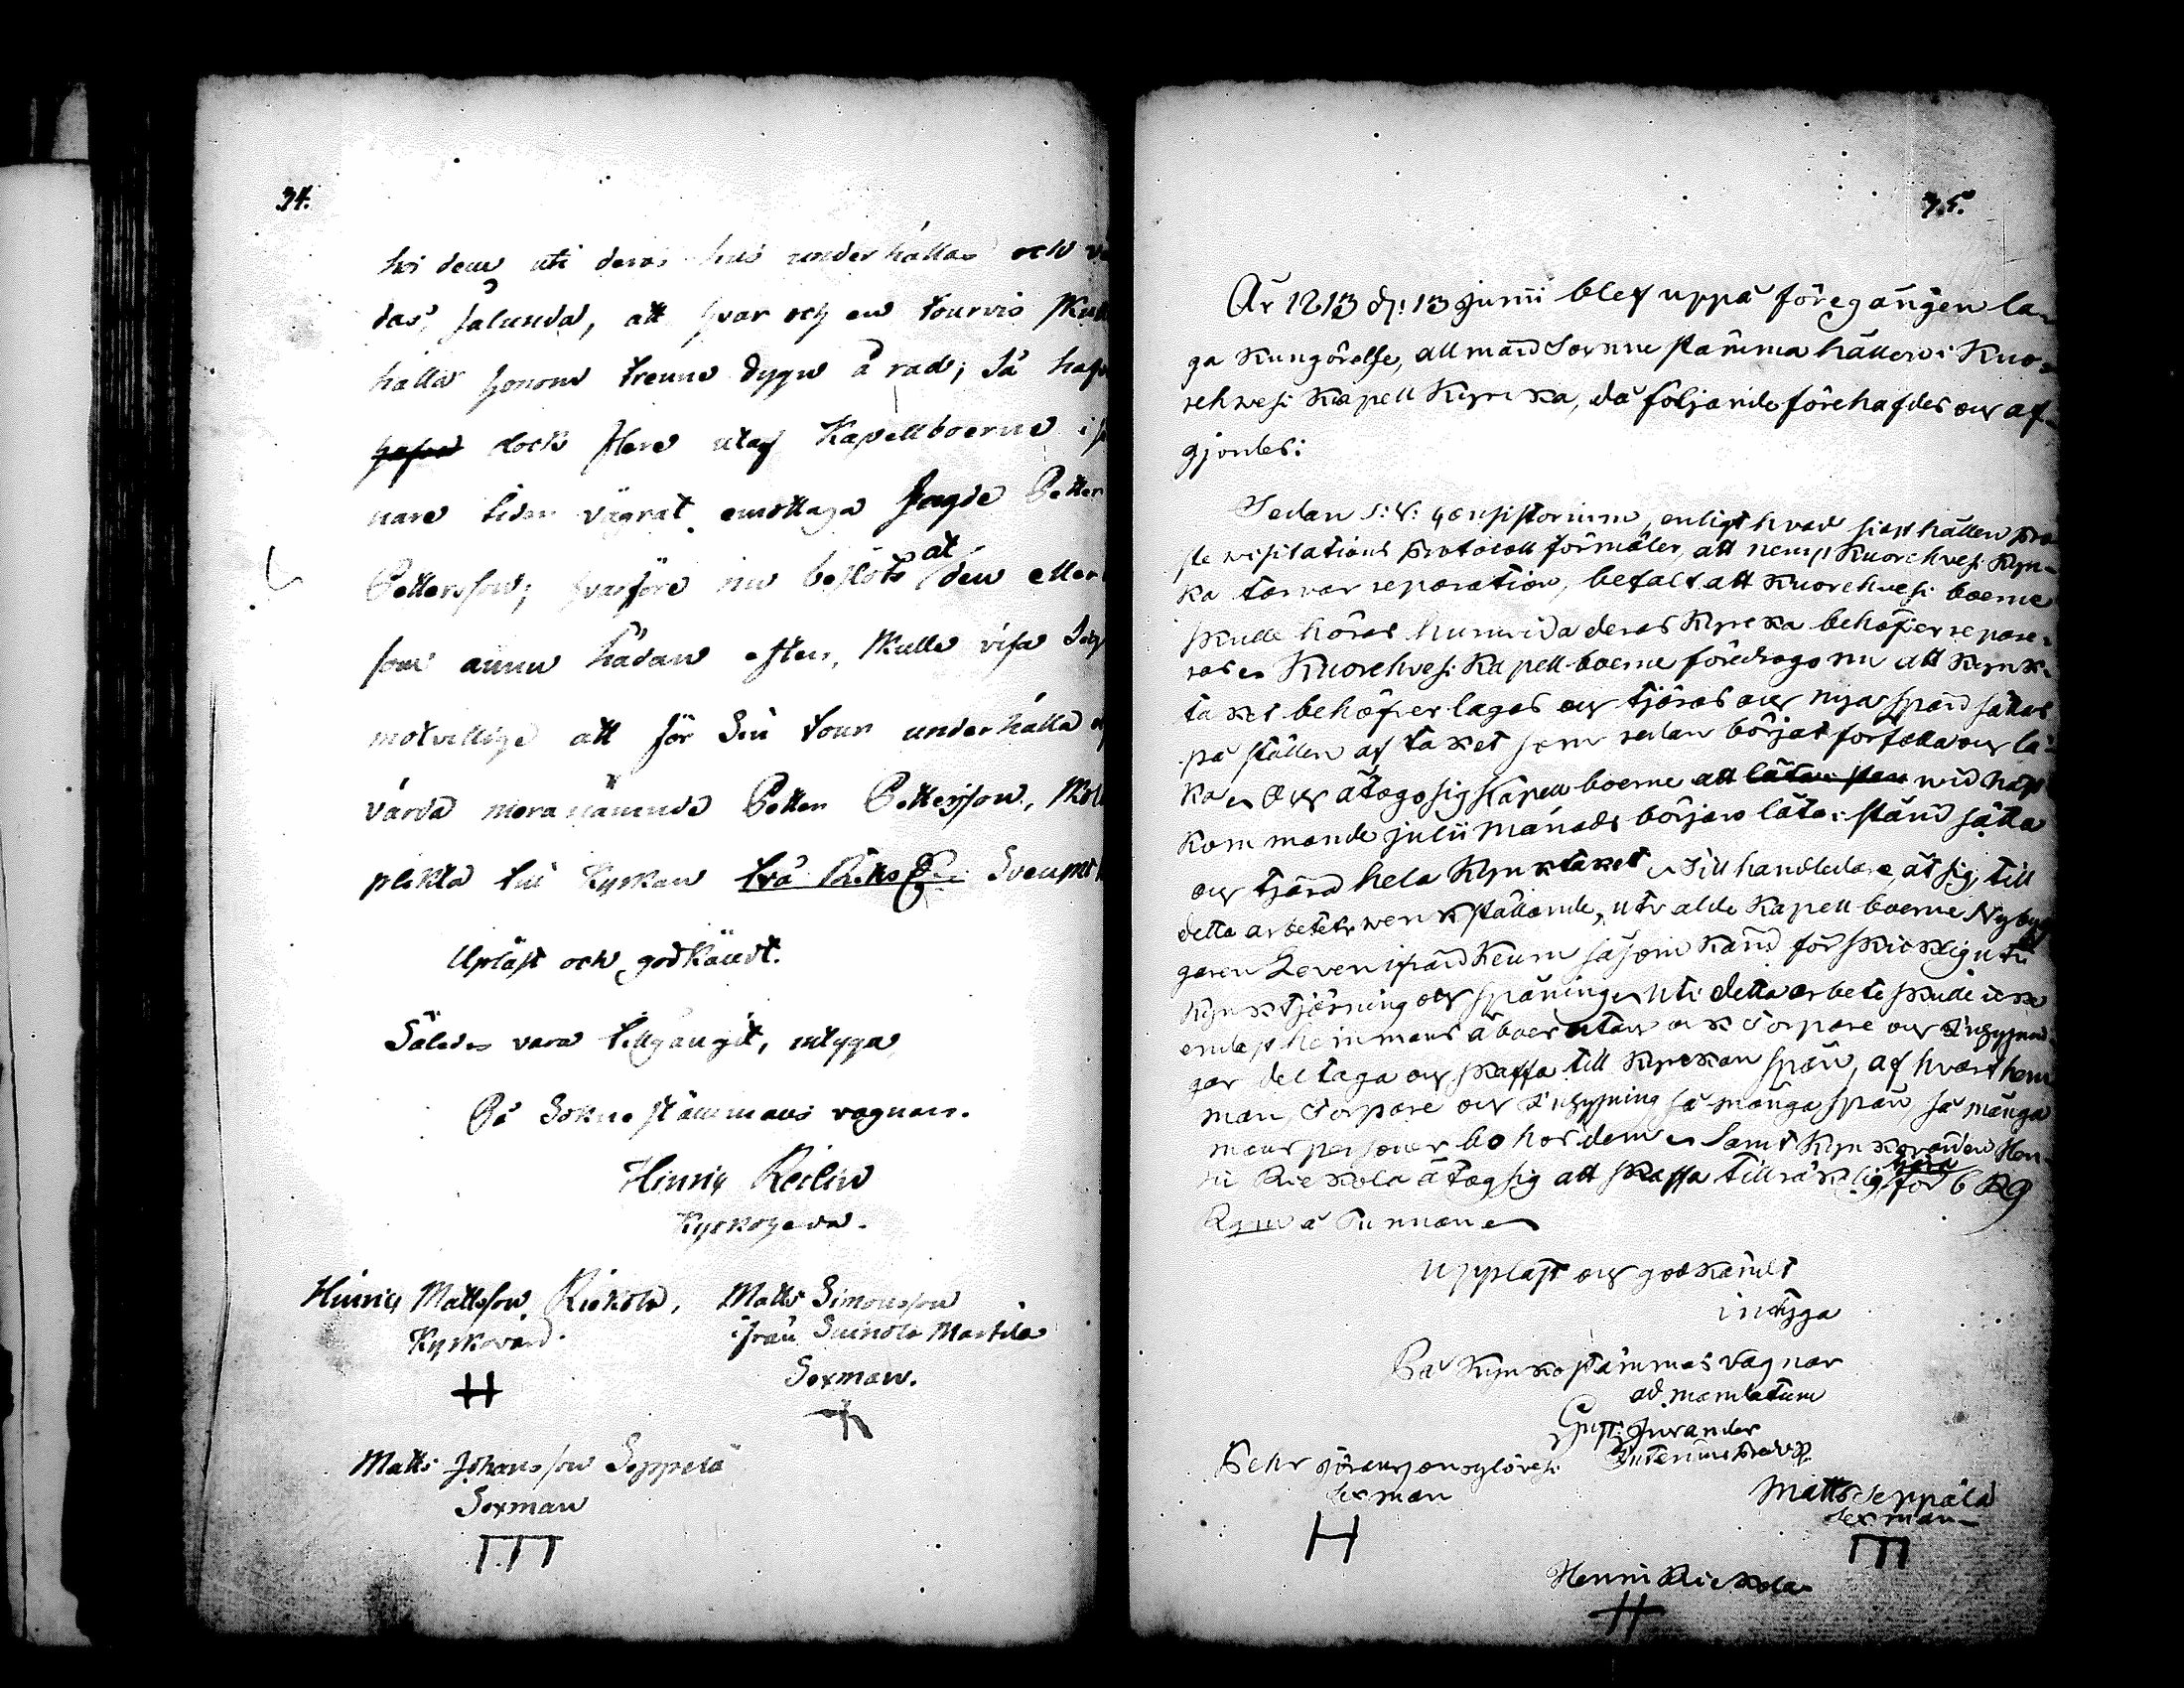 34.
hos dem uti deras hus underhållas och
das, sålunda, att hvar och en tourvis skull
hålla honom trenne dygn å rad; Så hafv
hafva dock flere utaf Kapellboerne i
nare tider vägrat emottaga sagde Petter
Pettersson; hvarföre nu beslöts at den eller
som ännu hädan efter, skulle visa sig
motvillige att för sin tour underhålla
vårda meranämnde Petter Pettersson, skola
plikta till Kyrkan två Riksd. Svenskt
Upläst och godkändt.
Således vara tillgångit, intyga
På Sokne stämmans vagnar.
Hinric Reilin
Kyrkoherde.
Hinric Mattsson Riekola,
Kyrkovärd.
H
Matts Simonsson
ifrån Suinola Martila
Sexman.
Matts Johansson Seppälä
Sexman
35.
År 1813 d. 13 Junii blef uppå föregången la-
ga Kungörelse, allmän Sokne stämma hållen i Kuo-
rehvesi Kapell Kyrka, då följande förehafdes och af-
gjordes:
Sedan Consistorium, enligt hvad sist hållen Pro
ste visitations Protocoll förmäler, att nemst Kuorehvesi Kyr-
ka tarvar reparation, befalt att Kuorehvesi boerne
skulle höras huruvida deras Kyrka behöfver repare-
ras Kuorehvesi Kapell-boerne föredrogo nu att Kyrk-
taket behöfver lagas och tjäras och nya spån sättas
på ställen af taket som redan börjat förfalla och lä-
ka Och åtogo sig Kapell boerne att låta vid näst
kommande julii månads början låta i stånd sätta
och tjära hela Kyrktaket Till handledare åt sig till
detta arbetets verkställande, utvalde Kapell boerne Nybyg
garen såsom känd för skicklig uti
Kyrktjärning och spåning Uti detta arbete skulle icke
endast hemmans åboer utan ock Torpare och Inhysnin
gar deltaga och skaffa till Kyrkan spån, af hvart hem
man, Torpare och Inhysning så många spån, så många
mans personer bo hos dem Samt Kyrkovärden Hen-
ric Riekola åtog sig att skaffa tillräcklig tjära för 6 R
å Tunnan
Uppläst och godkändt
intyga
På Kyrkostämmas vagnar
ad mandatum
Gust: Jurander
Interims
Pehr
sexman
H
Matts Seppälä
sexman
Henric Riekola
H